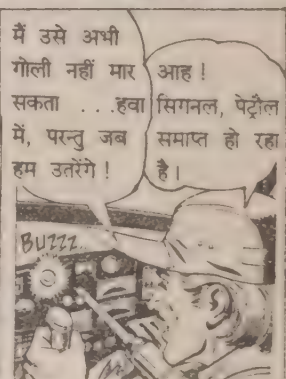 मैं उसे अभी
गोली नहीं मार
सकता ...हवा
में, परन्तु जब
हम उतरेंगे !
आह !
सिगनल, पेट्रौल
समाप्त हो रहा
है।
BUZZZ..